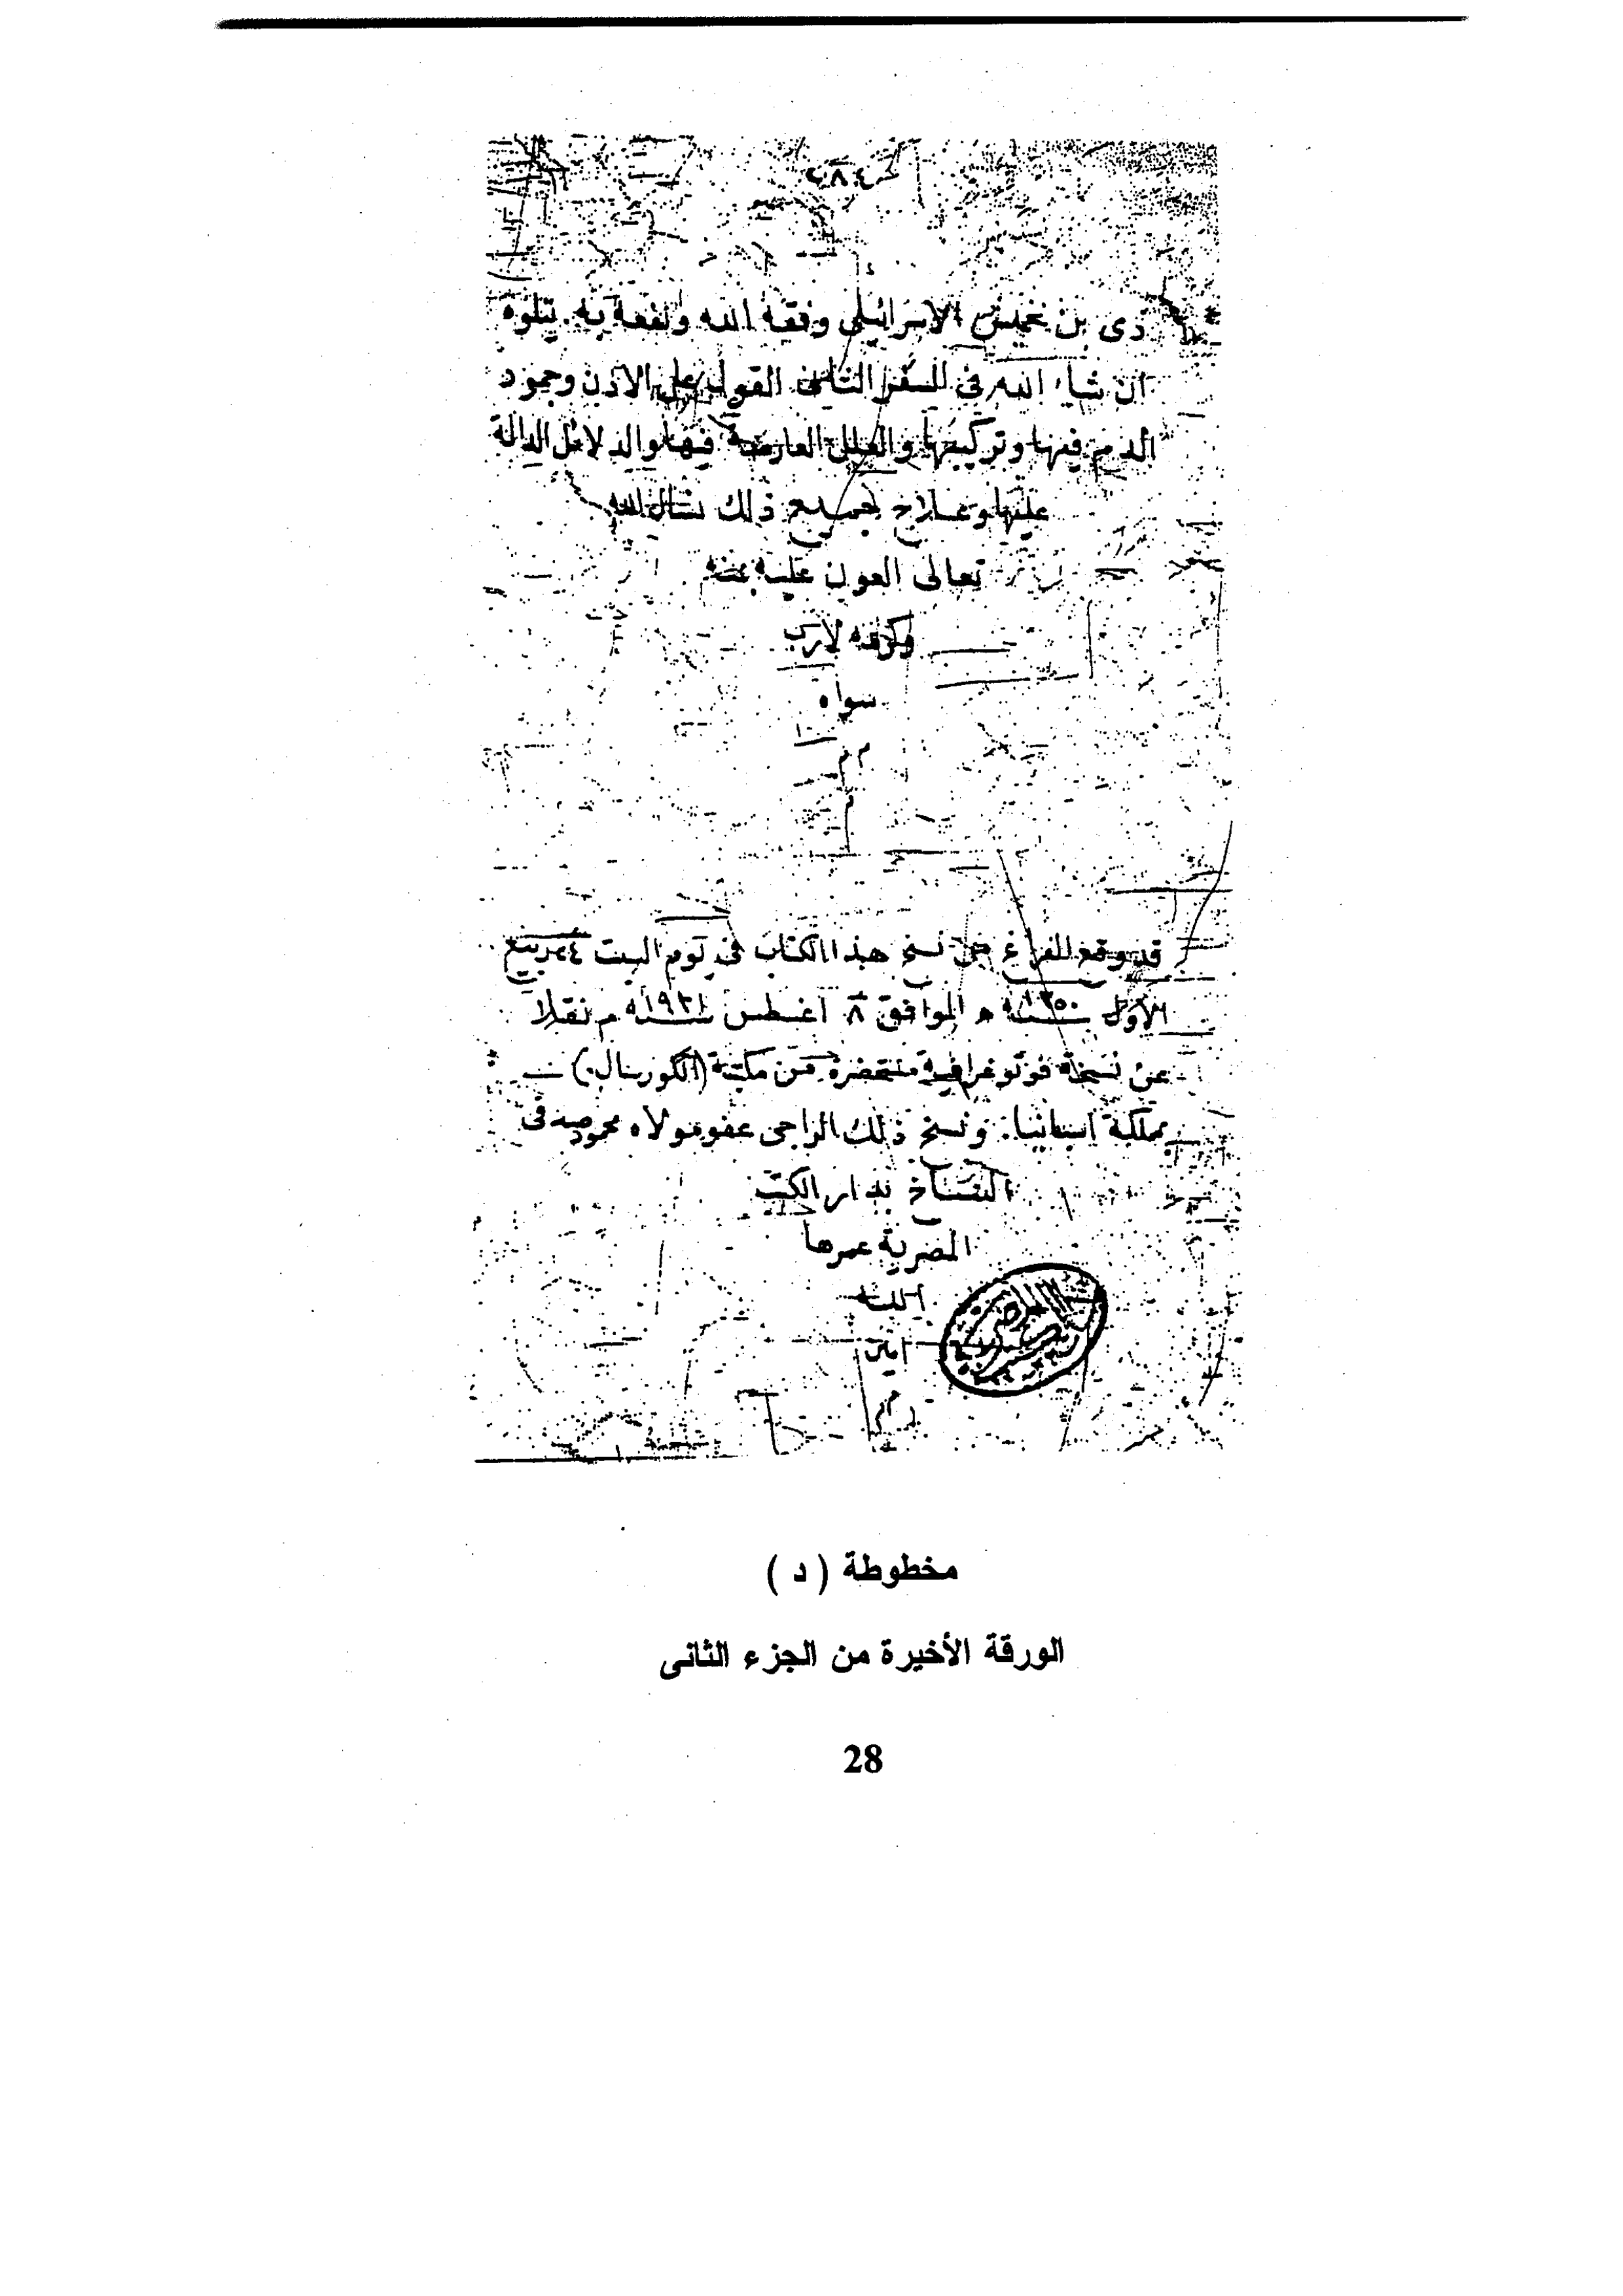 دى بن خميس الإسرائيلى وفقه الله ونفعه به. يتلوه
ان شاء الله فى السفر الثانى القول على الاذن وجمود
الدم فيها وتركيبها والعلل العارضة فيها والدلائل الدالة
عليها وعلاج جميع ذلك نسأل الله
تعالى العون عليه بمنه
وكرمه لا رب
سواه
م م
م
قد وقع الفراغ من نسخ هذا الكتاب فى يوم السبت ٢٤ ربيع
الأول سنة ١٣٥٠ ه الموافق ٨ أغسطس سنة ١٩٣١ م نقلا
عن نسخة فوتوغرافية مستحضرة من مكتبة (الكوريال)
بمملكة اسبانيا. ونسخ ذلك الراجى عفو مولاه محمود صدقى
النساخ بدار الكتب
المصرية عمرها
الله
امين
م
مخطوطة ( د )
الورقة الأخيرة من الجزء الثانى
28